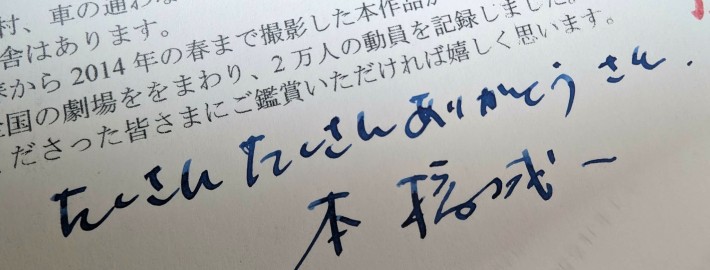 村、車の通わな
舎はあります。
から 2014 年の春まで撮影した本作品が
全国の劇場ををまわり、2 万人の動員を記録しました。
くださった皆さまにご鑑賞いただければ嬉しく思います。
たくさん たくさん ありがとう さん.
本橋成一